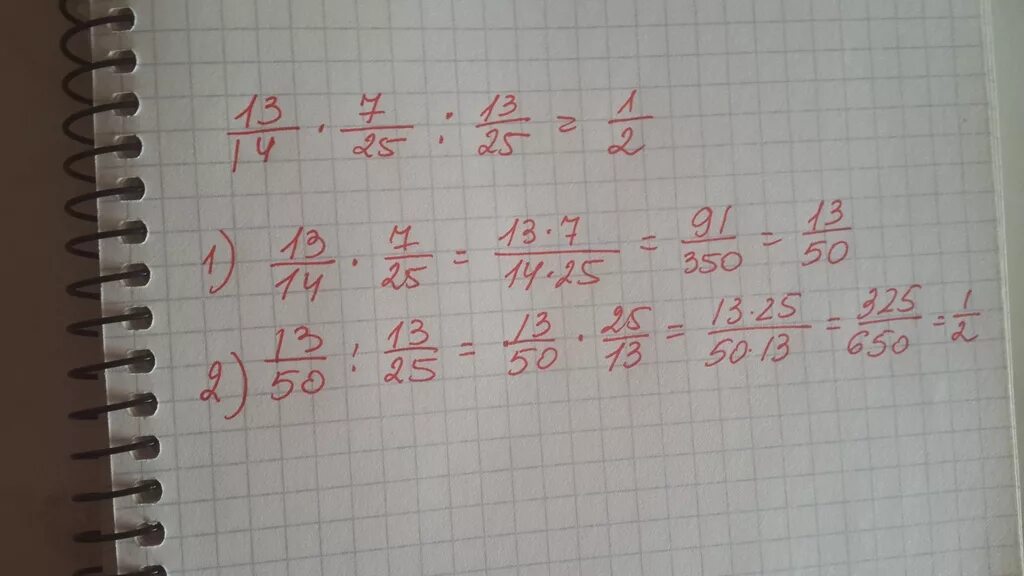 13/14 · 7/25 : 13/25 = 1/2
1) 13/14 · 7/25 = 13·7/14·25 = 91/350 = 13/50
2) 13/50 : 13/25 = 13/50 · 25/13 = 13·25/50·13 = 325/650 = 1/2